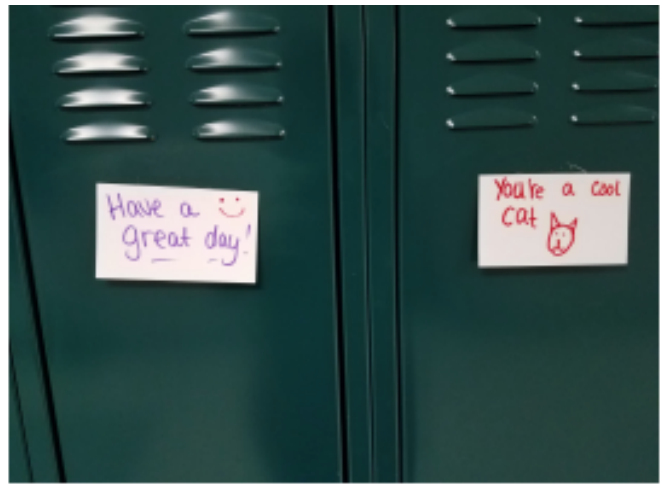 Have a
great day!
You're a cool
cat